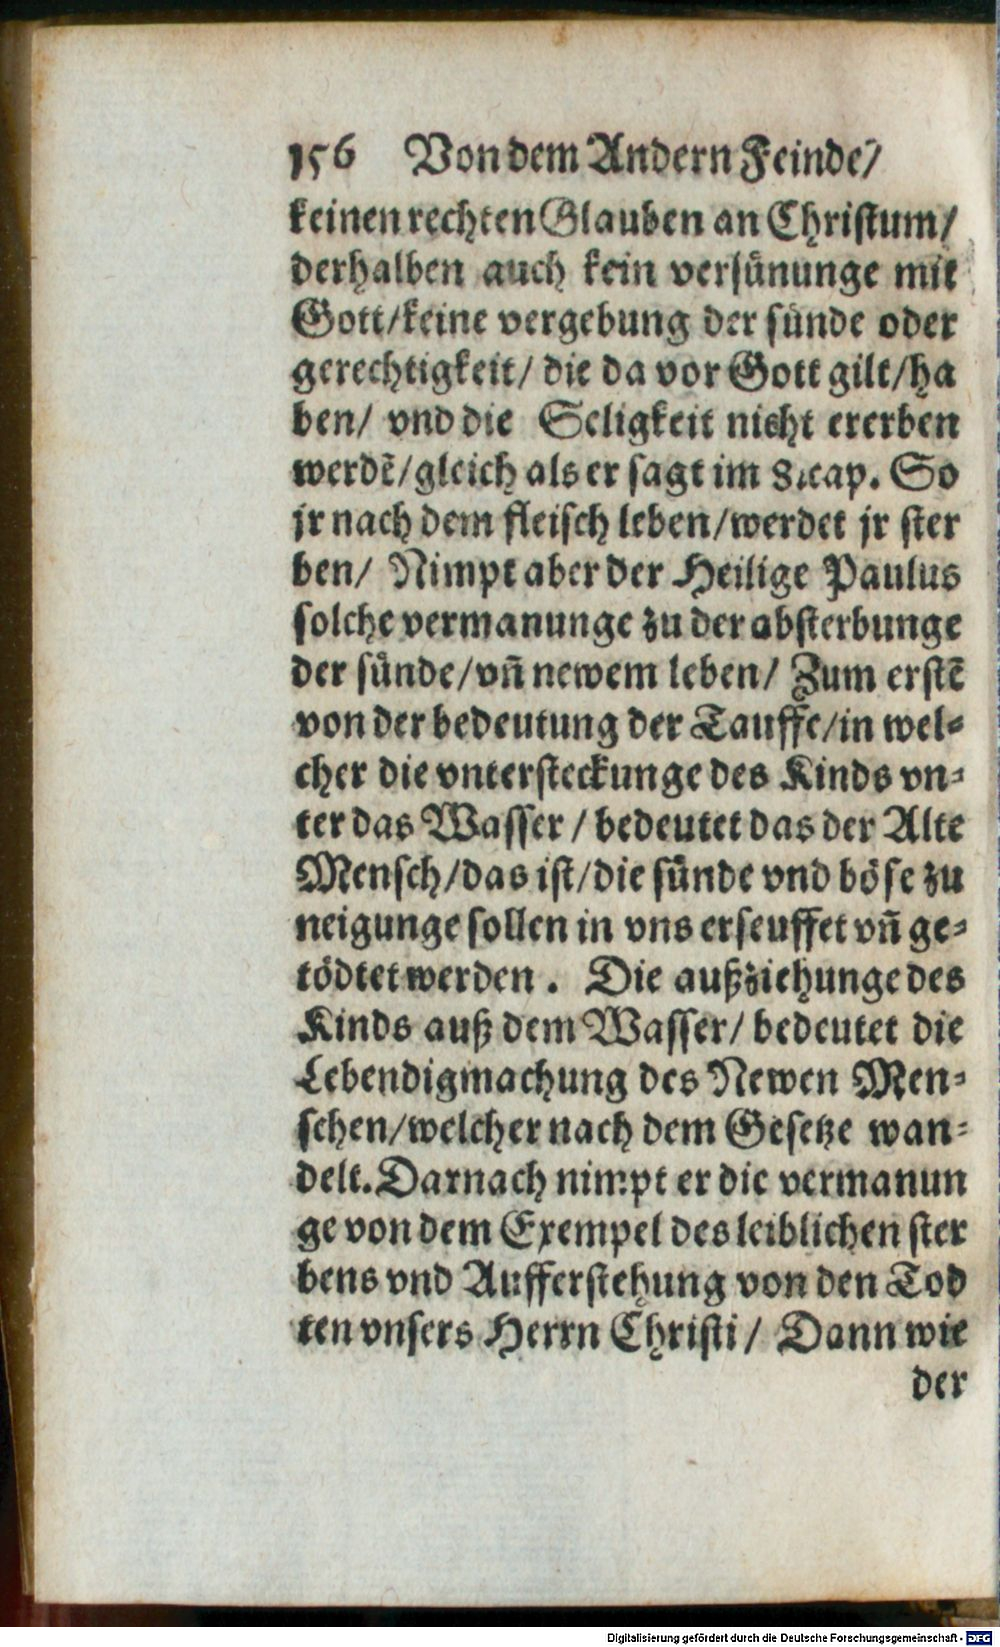 156 Von dem Andern Feinde/
keinen rechten Glauben an Christum/
derhalben auch kein versünunge mit
Gott/keine vergebung der sünde oder
gerechtigkeit/ die da vor Gott gilt/ha
ben/ vnd die Seligkeit nicht ererben
werdē/gleich als er sagt im 8. cap. So
jr nach dem fleisch leben/werdet jr ster
ben/ Nimpt aber der Heilige Paulus
solche vermanunge zu der absterbunge
der sünde/vñ newem leben/ Zum erstē
von der bedeutung der Tauffe/in wel-
cher die vntersteckunge des Kinds vn-
ter das Wasser / bedeutet das der Alte
Mensch/das ist/die sünde vnd böse zu
neigunge sollen in vns erseuffet vñ ge-
tödtet werden. Die außziehunge des
Kinds auß dem Wasser/ bedeutet die
Lebendigmachung des Newen Men-
schen/welcher nach dem Gesetze wan-
delt. Darnach nimpt er die vermanun
ge von dem Exempel des leiblichen ster
bens vnd Aufferstehung von den Tod
ten vnsers Herrn Christi / Dann wie
der
Digitalisierung gefördert durch die Deutsche Forschungsgemeinschaft - DFG